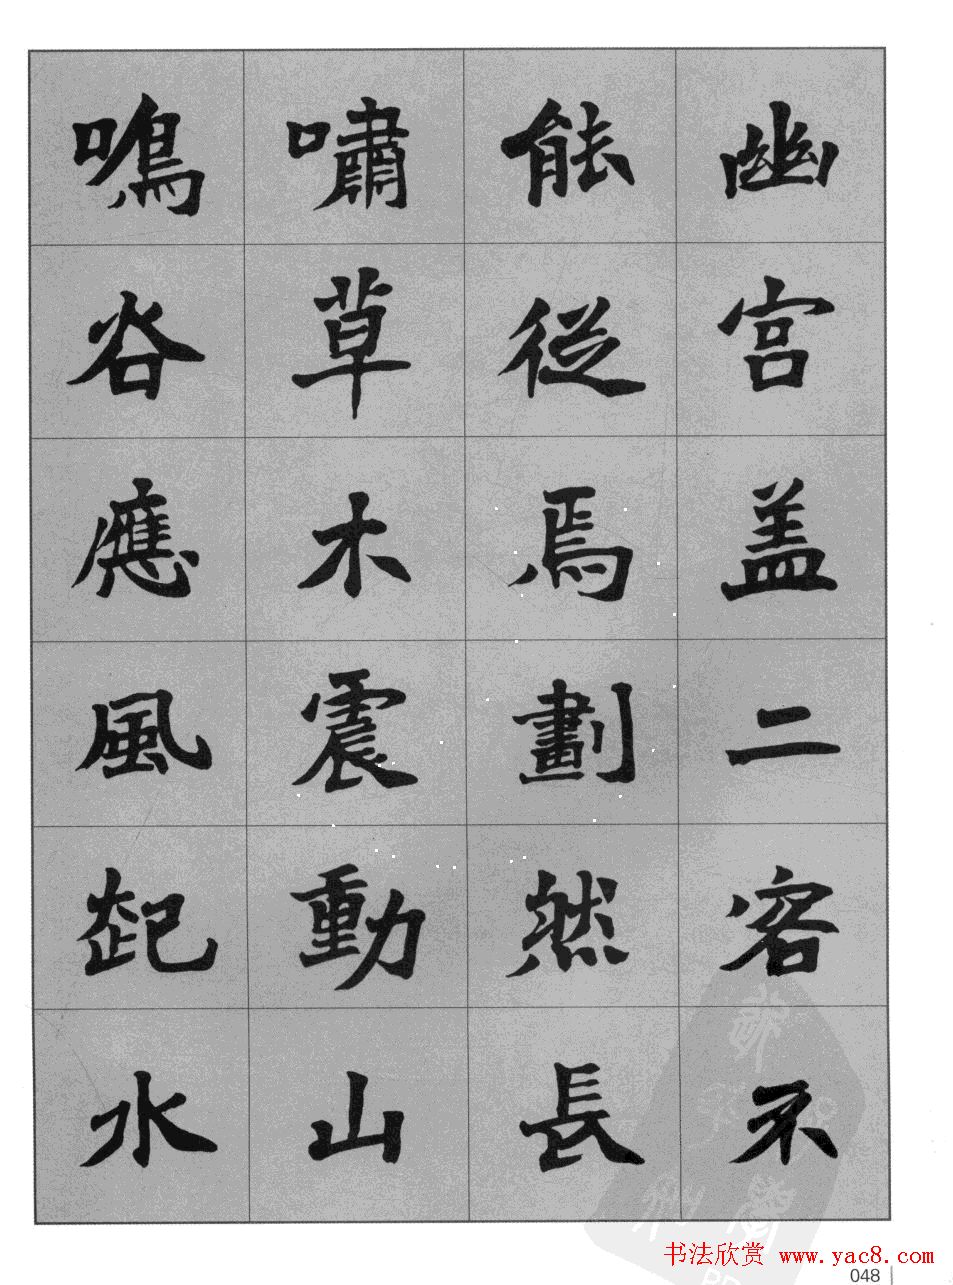 幽宫盖二客不
能從焉劃然長
嘯草木震動山
鳴谷應風起水
书法欣赏 www.yac8.com
048